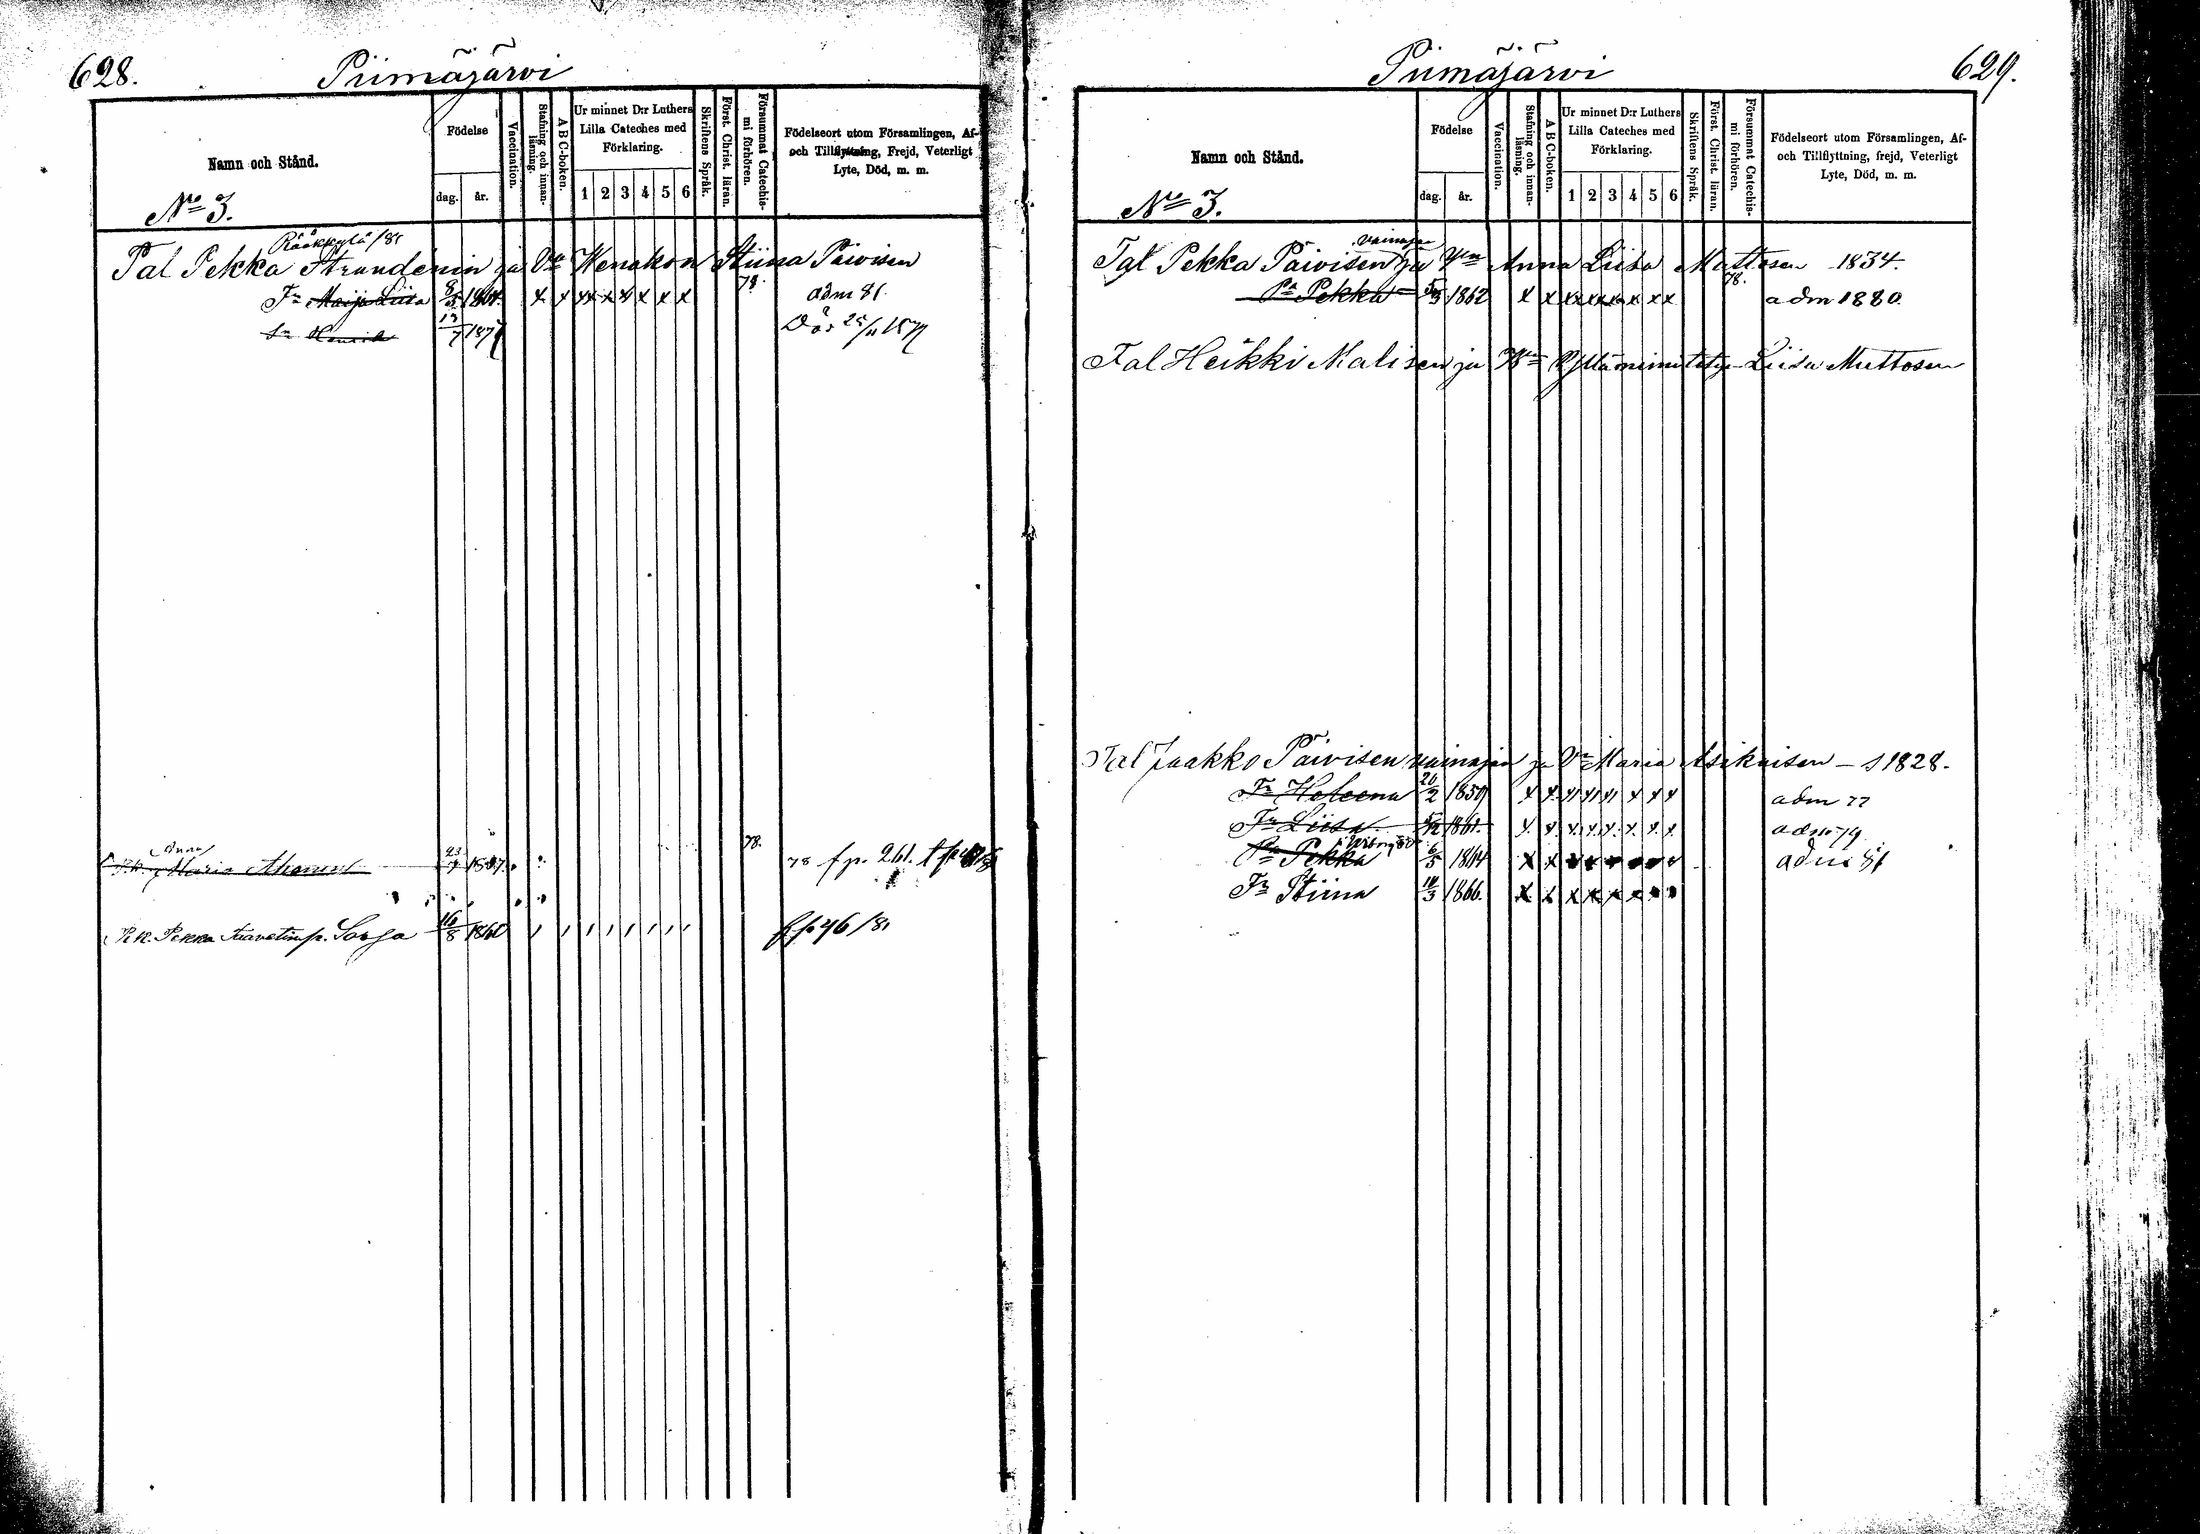 628.
Piimäjärvi
Namn och Stånd.
No 3.
Födelse
dag. år.
Vaccination.
Stafning och innanläsning.
A B C-boken.
Ur minnet D:r Luthers Lilla Cateches med Förklaring.
1 2 3 4 5 6
Skriftens Språk.
Först. Christ. läran.
Försummat Catechismi förhören.
Födelseort utom Församlingen, Af- och Tillflyttning, Frejd, Veterligt Lyte, Död, m. m.
Rääkkylä /81
Pal Pekka Strandenin ja Vo Wenakon Stiina Päivisen
Tr Maija Liisa 8/5 1864. x x x x x x x x 78. adm 81.
Henrik 13/7 1877 Död 25/11 1877
Anna
Maria 23/7 1887. 78. 78 fp. 261.
Pekka Sorsa 16/8 1860 fp 46/81
629.
Piimäjärvi
Namn och Stånd.
No 3.
Födelse
dag. år.
Vaccination.
Stafning och innanläsning.
A B C-boken.
Ur minnet D:r Luthers Lilla Cateches med Förklaring.
1 2 3 4 5 6
Skriftens Språk.
Först. Christ. läran.
Försummat Catechismi förhören.
Födelseort utom Församlingen, Af- och Tillflyttning, frejd, Veterligt Lyte, Död, m. m.
vainajan
Tal Pekka Päivisen ja Vm Anna Liisa Mattosen 1834.
Pa Pekka 5/3 1862 x x x x x x x x 78. adm 1880.
Tal Heikki Malisen ja Liisa Muttosen
Tal Jaakko Päivisen vainajan ja Vm Maria Asikaisen – s 1828.
Tr Heleena 20/2 1859 x x x x x x x x adm 77
Tr Liisa 5/12 1861. x x x x x x x x adm 79
Pa Pekka 6/5 1864 x x x x x x x x adm 81
Tr Stiina 10/3 1866. x x x x x x x x